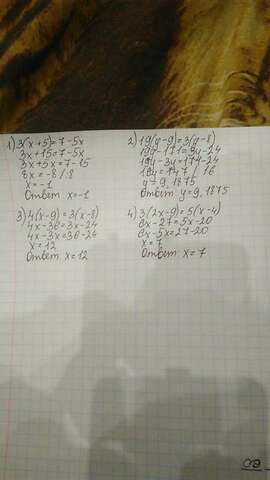 1) 3(x+5)=7-5x
3x+15=7-5x
3x+5x=7-15
8x=-8/:8
x=-1
Ответ: x=-1
2) 19(y-9)=3(y-8)
19y-171=3y-24
19y-3y=171-24
16y=147 / 16
y=9,1875
Ответ: y=9,1875
3) 4(x-9)=3(x-8)
4x-36=3x-24
4x-3x=36-24
x=12
Ответ: x=12
4) 3(2x-9)=5(x-4)
6x-27=5x-20
6x-5x=27-20
x=7
Ответ: x=7